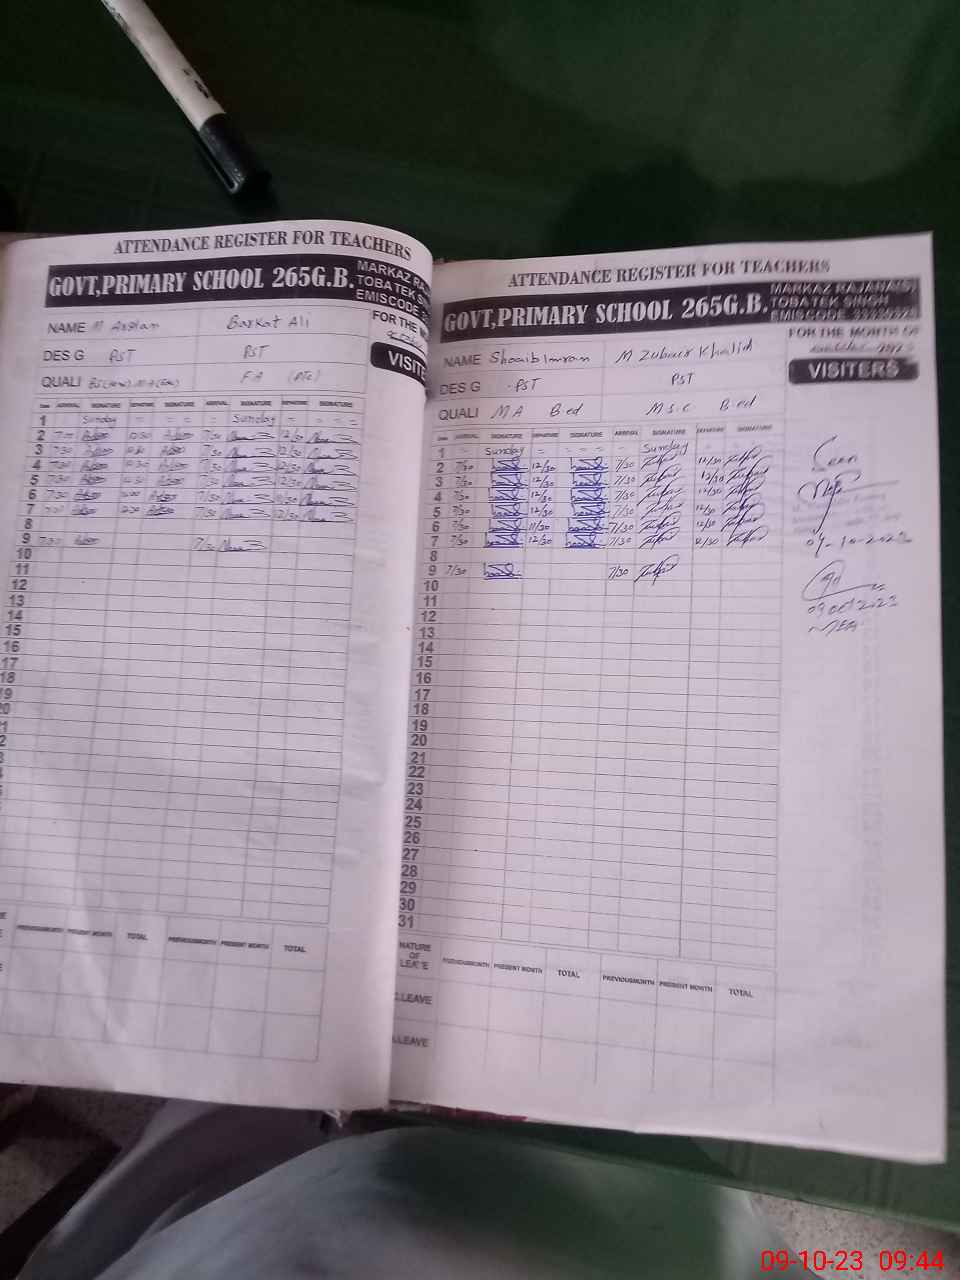 ATTENDANCE REGISTER FOR TEACHERS
GOVT,PRIMARY SCHOOL 265G.B.
MARKAZ
TOBA TEK
EMISCODE
FOR THE
VISITE
NAME M Arslan Barkat Ali
DES G PST PST
QUALI F A (PTC)
Date ARRIVAL SIGNATURE DEPATURE SIGNATURE ARRIVAL SIGNATURE DEPATURE SIGNATURE
1 Sunday Sunday
2 7/30 12/30
3 7/30 7/30 12/30
4 7/30 7/30 12/30
5 7/30 7/30 12/30
6 7/30 7/30
7 7/30 7/30 12/30
8
9 7/30 7/30
10
11
12
13
14
15
16
17
18
19
20
PREVIOUSMONTH PRESENT MONTH TOTAL PREVIOUSMONTH PRESENT MONTH TOTAL
ATTENDANCE REGISTER FOR TEACHERS
GOVT,PRIMARY SCHOOL 265G.B.
MARKAZ RAJANA(S)
TOBA TEK SINGH
EMISCODE
FOR THE MONTH OF
VISITERS
NAME Shoaib Imran M Zubair Khalid
DES G PST PST
QUALI M A B ed M S.C B ed
Date ARRIVAL SIGNATURE DEPATURE SIGNATURE ARRIVAL SIGNATURE DEPATURE SIGNATURE
1 Sunday Sunday
2 7/30 12/30 7/30 12/30
3 7/30 12/30 7/30 12/30
4 7/30 12/30 7/30 12/30
5 7/30 12/30 7/30 12/30
6 7/30 11/30 7/30 12/30
7 7/30 12/30 7/30 12/30
8
9 7/30 7/30
10
11
12
13
14
15
16
17
18
19
20
21
22
23
24
25
26
27
28
29
30
31
Seen
04-10-2023
09 oct 2023
MEA
NATURE OF LEAVE PREVIOUSMONTH PRESENT MONTH TOTAL PREVIOUSMONTH PRESENT MONTH TOTAL
C.LEAVE
LEAVE
09-10-23 09:44